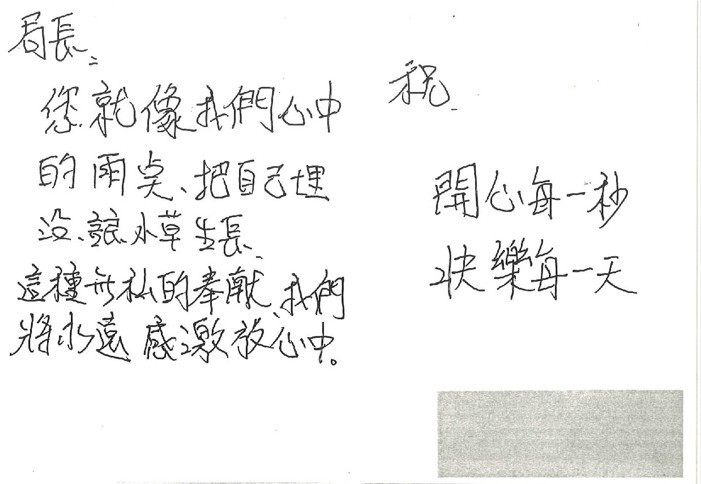 局長：
您就像我們心中
的雨點、把自己埋
沒、讓水草生長、
這種無私的奉獻、我們
將永遠感激放心中。
祝
開心每一秒
快樂每一天